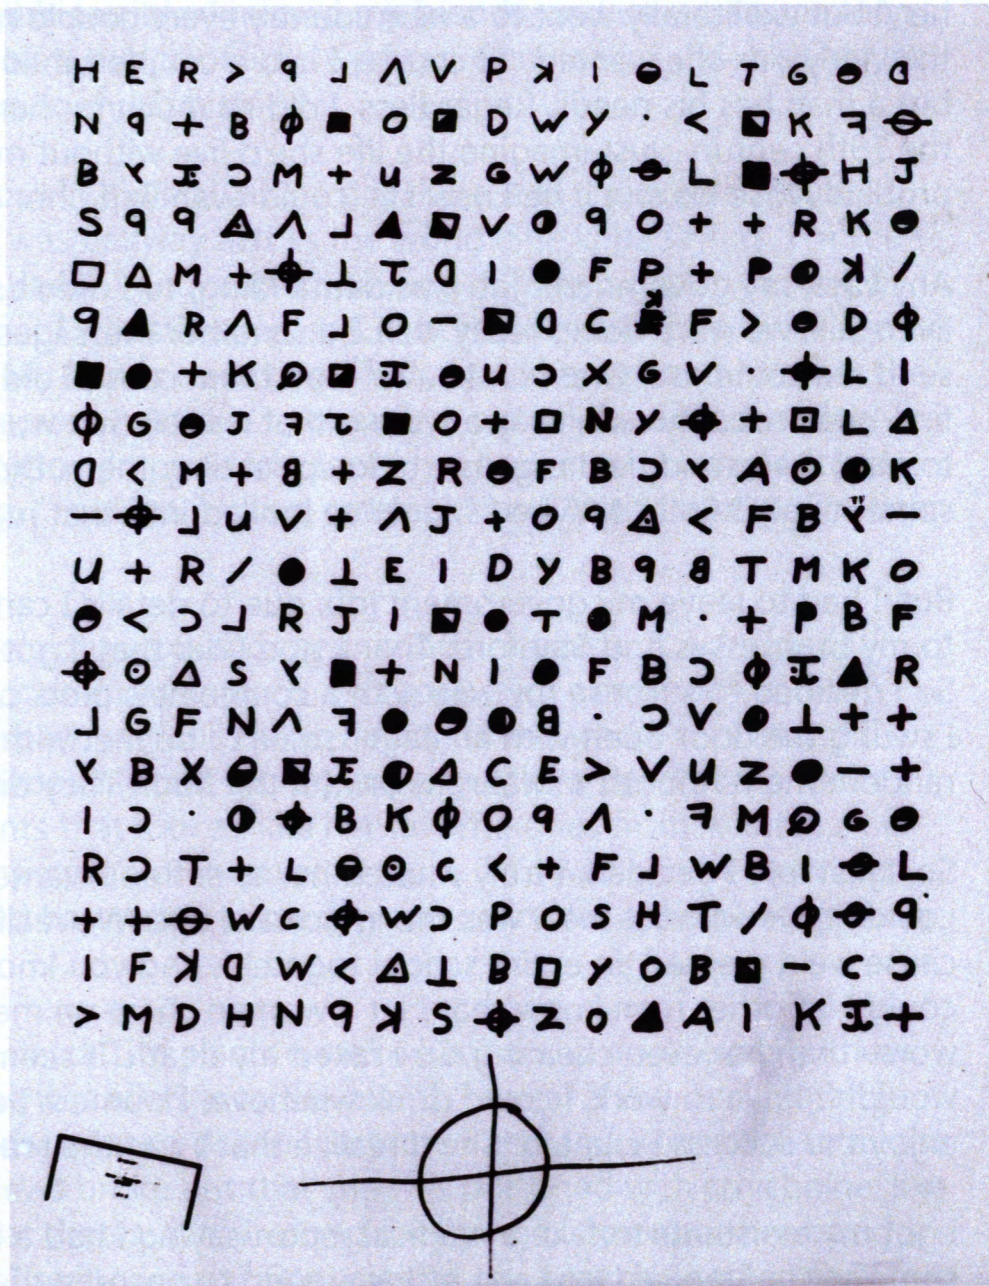 H E R > ꟼ ⅃ Λ V P ꓘ I ◒ L T G ◒ ᗡ
N 9 + B ϕ ■ O ◪ D W Y · < ◩ K ꟻ ⊖
B Y ⵊ Ɔ M + u Z G W ϕ ⊖ L ■ ⌖ H J
S 9 9 ◬ Λ ⅃ ▲ ◩ V ◑ 9 O + + R K ◒
□ △ M + ⌖ ⊥ τ ᗡ I ● F P + P ◒ ꓘ /
9 ▲ R Λ F ⅃ O – ◩ ᗡ C F > ◒ D ϕ
■ ● + K ◒ I ◒ u Ɔ X G V · ⌖ L I
ϕ G ◒ J ꟻ τ ■ O + □ N Y ⌖ + ⊡ L △
ᗡ < M + 8 + Z R ◒ F B Ɔ Y A ⊙ ◑ K
– ⌖ ⅃ u V + Λ J + O 9 ◬ < F B Y –
U + R / ● ⊥ E I D Y B 9 8 T M K O
◒ < Ɔ ⅃ R J I ◩ ● T ● M · + P B F
⌖ ⊙ △ S Y ■ + N I ● F B Ɔ ϕ I ▲ R
⅃ G F N Λ ꟻ ● ◒ ◑ 8 · Ɔ V ◑ ⊥ + +
Y B X ◒ ◩ I ◑ △ C E > V U Z ● – +
I Ɔ · ◑ ⌖ B K ϕ O 9 Λ · ꟻ M G ◒
R Ɔ T + L ◒ ⊙ C < + F ⅃ W B I ⊖ L
+ + ⊖ W C ⌖ W Ɔ P O S H T / ϕ ⊖ 9
I F ꓘ ᗡ W < ◬ ⊥ B □ Y O B ◩ – C Ɔ
> M D H N 9 ꓘ S ⌖ Z O ▲ A I K I +